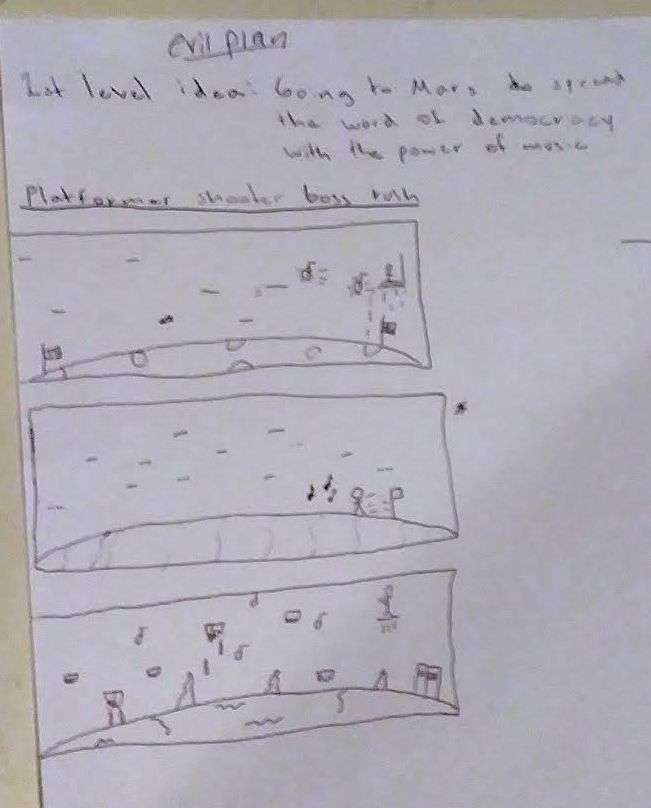 evil plan
1st level idea: Going to Mars to spread
the word of democracy
with the power of music
Platformer shooter boss rush